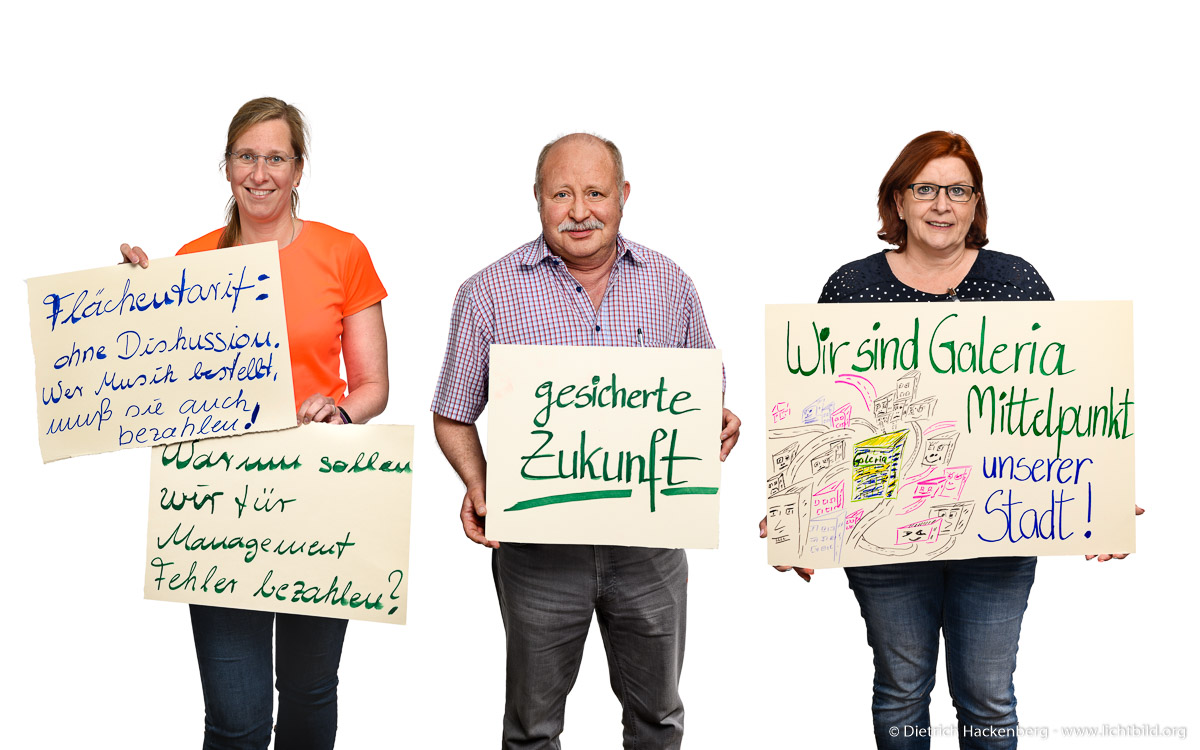 Flächentarif:
ohne Diskussion.
Wer Musik bestellt,
muß sie auch
bezahlen!
Warum sollen
wir für
Management
Fehler bezahlen?
gesicherte
Zukunft
Wir sind Galeria
Mittelpunkt
unserer
Stadt!
Galeria
© Dietrich Hackenberg - www.lichtbild.org